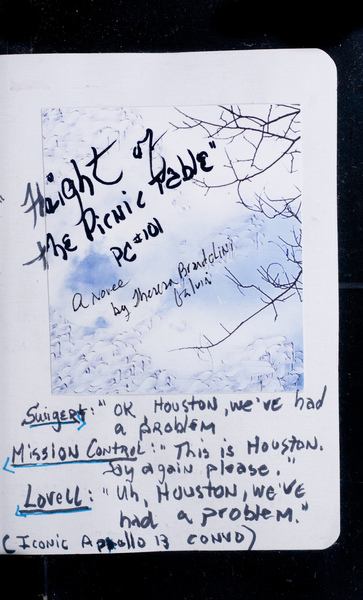 "Height of
the Picnic Table"
PC #101
a novel
by Theresa Brandolini
Galvin
Swigert: "OK HOUSTON, we've had
a problem
MISSION CONTROL: "This is HOUSTON.
Say again please."
LOVELL: "Uh, HOUSTON, WE'VE
had a problem."
(ICONIC Apollo 13 CONVO)